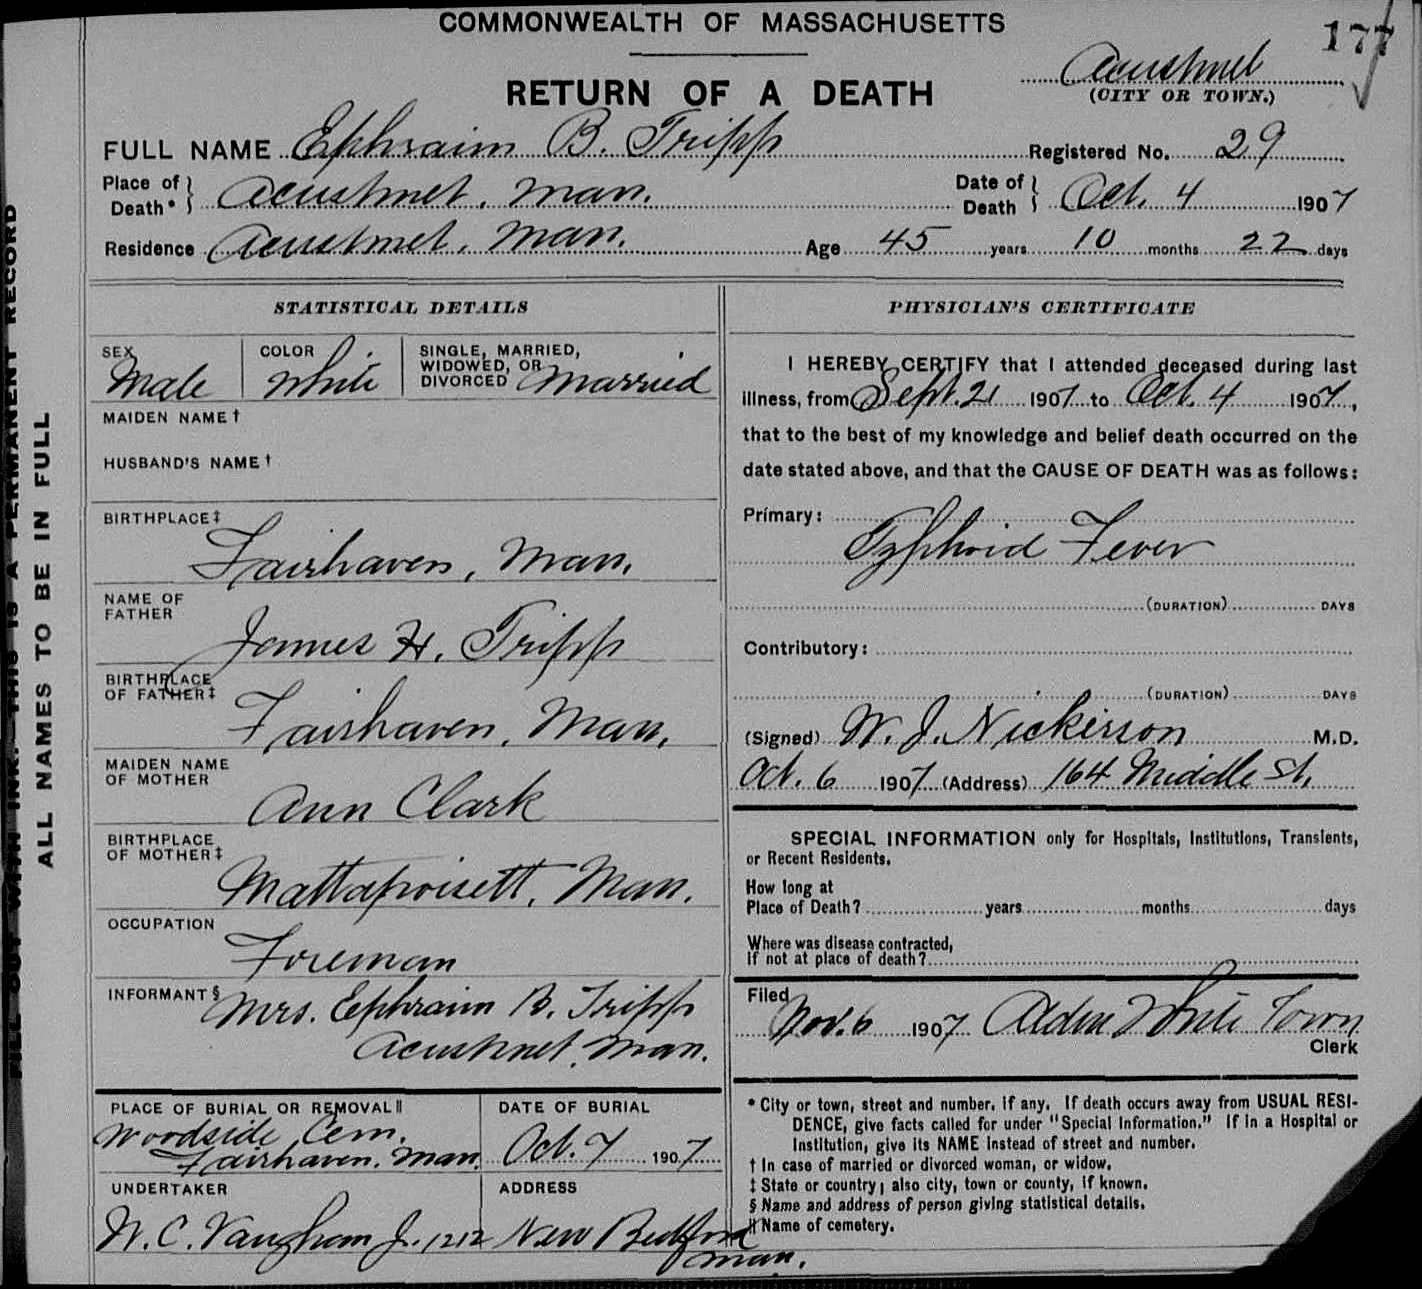 COMMONWEALTH OF MASSACHUSETTS
177
RETURN OF A DEATH
Acushnet
(CITY OR TOWN.)
FULL NAME Ephraim B. Tripp Registered No. 29
Place of Death* Acushnet, Mass. Date of Death Oct. 4 1907
Residence Acushnet, Mass. Age 45 years 10 months 22 days
STATISTICAL DETAILS
SEX Male COLOR White SINGLE, MARRIED, WIDOWED, OR DIVORCED Married
MAIDEN NAME †
HUSBAND'S NAME †
BIRTHPLACE ‡
Fairhaven, Mass.
NAME OF FATHER
James H. Tripp
BIRTHPLACE OF FATHER ‡
Fairhaven, Mass.
MAIDEN NAME OF MOTHER
Ann Clark
BIRTHPLACE OF MOTHER ‡
Mattapoisett, Mass.
OCCUPATION
Foreman
INFORMANT § Mrs. Ephraim B. Tripp
Acushnet, Mass.
PLACE OF BURIAL OR REMOVAL ||
Woodside Cem.
Fairhaven, Mass.
DATE OF BURIAL
Oct. 7 1907
UNDERTAKER
W. C. Vaugham Jr. 1212
ADDRESS
New Bedford
Mass.
PHYSICIAN'S CERTIFICATE
I HEREBY CERTIFY that I attended deceased during last
illness, from Sept. 21 1907 to Oct. 4 1907,
that to the best of my knowledge and belief death occurred on the
date stated above, and that the CAUSE OF DEATH was as follows:
Primary:
Typhoid Fever
(DURATION) DAYS
Contributory:
(DURATION) DAYS
(Signed) W. J. Nickerson M.D.
Oct. 6 1907 (Address) 164 Middle St.
SPECIAL INFORMATION only for Hospitals, Institutions, Transients,
or Recent Residents.
How long at
Place of Death? years months days
Where was disease contracted,
If not at place of death?
Filed
Nov. 6 1907 Alden White Town
Clerk
* City or town, street and number, if any. If death occurs away from USUAL RESI-
DENCE, give facts called for under "Special Information." If in a Hospital or
Institution, give its NAME instead of street and number.
† In case of married or divorced woman, or widow.
‡ State or country; also city, town or county, if known.
§ Name and address of person giving statistical details.
|| Name of cemetery.
FILL OUT WITH INK. THIS IS A PERMANENT RECORD
ALL NAMES TO BE IN FULL